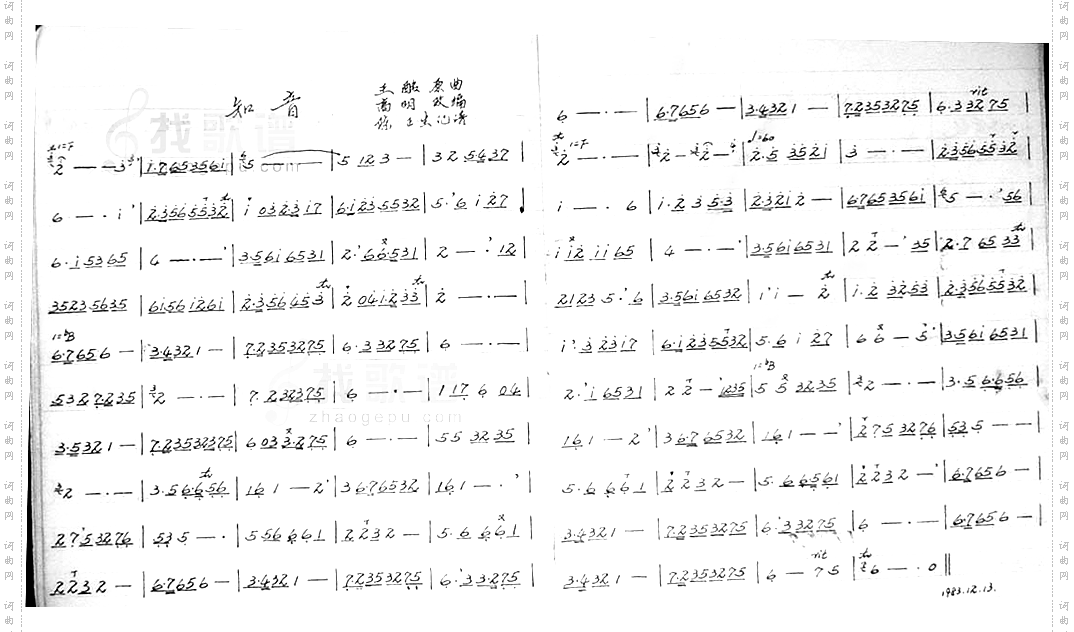 知音
王酩 原曲
1=F
2 — — 3 | i·7653561 | 5 — — — | 5 1 2 3 — | 3 2 5 4 3 7 |
6 — · i | 2·3565532 | i 032317 | 6·1235532 | 5·6 i 27 |
6·i 5365 | 4 — · — | 3·561 6531 | 2·66·531 | 2 — · 12 |
3523·5635 | 61561261 | 2·356453 | 2 041·233 | 2 — · — |
1=♭B
6·7656 — | 3·4321 — | 7·2353275 | 6·33275 | 6 — · — |
5327235 | 2 — · — | 7·232375 | 6 — · — | 117 6 04 |
3·5321 — | 7·23532375 | 6 033·275 | 6 — · — | 55 3235 |
2 — · — | 3·56·656 | 161 — 2 | 3676532 | 161 — · |
2753276 | 535 — · | 556661 | 2232 — | 5·6 661 |
2232 — | 6·7656 — | 3·4321 — | 7·2353275 | 6·33·275 |
6 — · — | 6·7656 — | 3·4321 — | 7·2353275 | 6·33275 |
rit
1=F
2 — · — | 2 — 2 — | 2·5 3521 | 3 — · — | 2·3565532 |
♩=60
i — · 6 | i·2 3 5·3 | 2·3212 — | 67653561 | 5 — · 56 |
i i2 i i 65 | 4 — · — | 3·5616531 | 2 2 — 35 | 2·7 65 33 |
2123 5·6 | 3·5616532 | i i — 2 | i·2 3253 | 2·3565532 |
i·32317 | 6·1235532 | 5·6 i 27 | 6 6 — 5 | 3·561 6531 |
1=♭B
2·i 6531 | 2 2 — 1235 | 5 5 3235 | 2 — · — | 3·5 6·656 |
161 — 2 | 3676532 | 161 — — | 2753276 | 535 — — |
5·6 661 | 2232 — | 5·66561 | 2232 — | 6·7656 — |
3·4321 — | 7·2353275 | 6·33275 | 6 — · — | 6·7656 — |
3·4321 — | 7·2353275 | 6 — 75 | 6 — · 0 ‖
rit
1983.12.13.
找歌谱
zhaogepu.com
词曲网